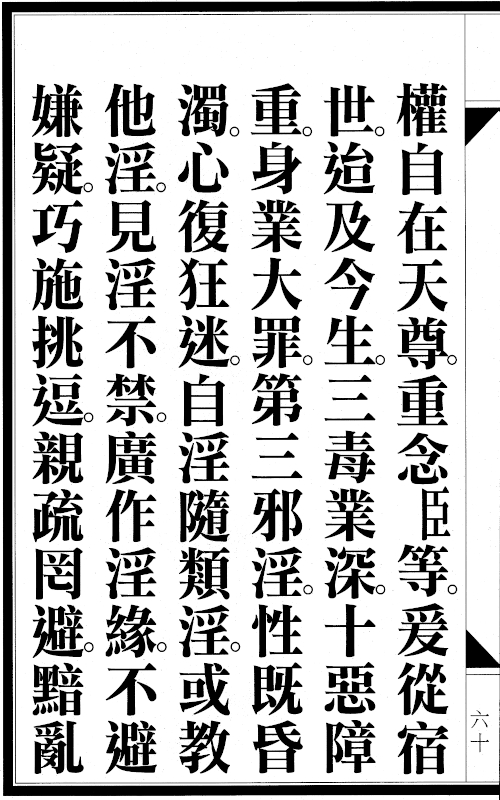 權自在天尊。重念臣等。爰從宿
世。迨及今生。三毒業深。十惡障
重。身業大罪。第三邪淫。性既昏
濁。心復狂迷。自淫隨類淫。或教
他淫。見淫不禁。廣作淫緣。不避
嫌疑。巧施挑逗。親疏罔避。黯亂
六十